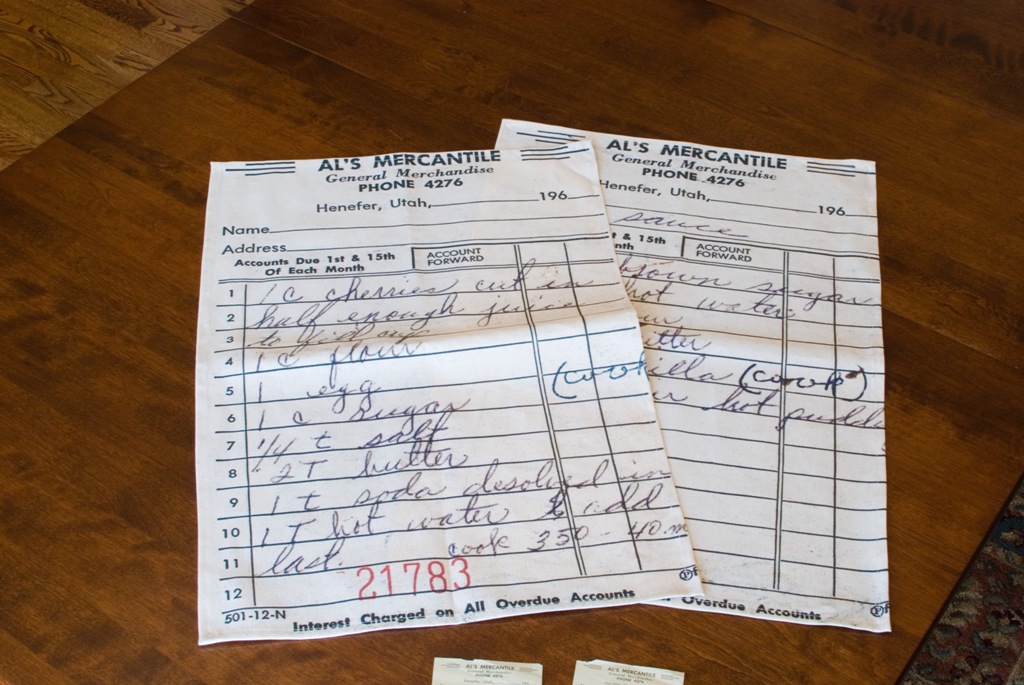 AL'S MERCANTILE
General Merchandise
PHONE 4276
Henefer, Utah, 196
Name
Address
Accounts Due 1st & 15th
Of Each Month
ACCOUNT
FORWARD
1 1 c cherries cut in
2 half enough juice
3 to
4 1 c flour
5 1 egg (cook
6 1 c sugar
7 1/4 t salt
8 2 T butter
9 1 t soda desolved in
10 1 T hot water & add
11 last. cook 350 - 40 m
12 21783
501-12-N
Interest Charged on All Overdue Accounts
AL'S MERCANTILE
General Merchandise
PHONE 4276
Henefer, Utah, 196
sauce
t & 15th
nth
ACCOUNT
FORWARD
brown sugar
hot water
ur
utter
illa (cook)
hot pudd
Overdue Accounts
AL'S MERCANTILE
General Merchandise
PHONE 4276
AL'S MERCANTILE
General Merchandise
PHONE 4276